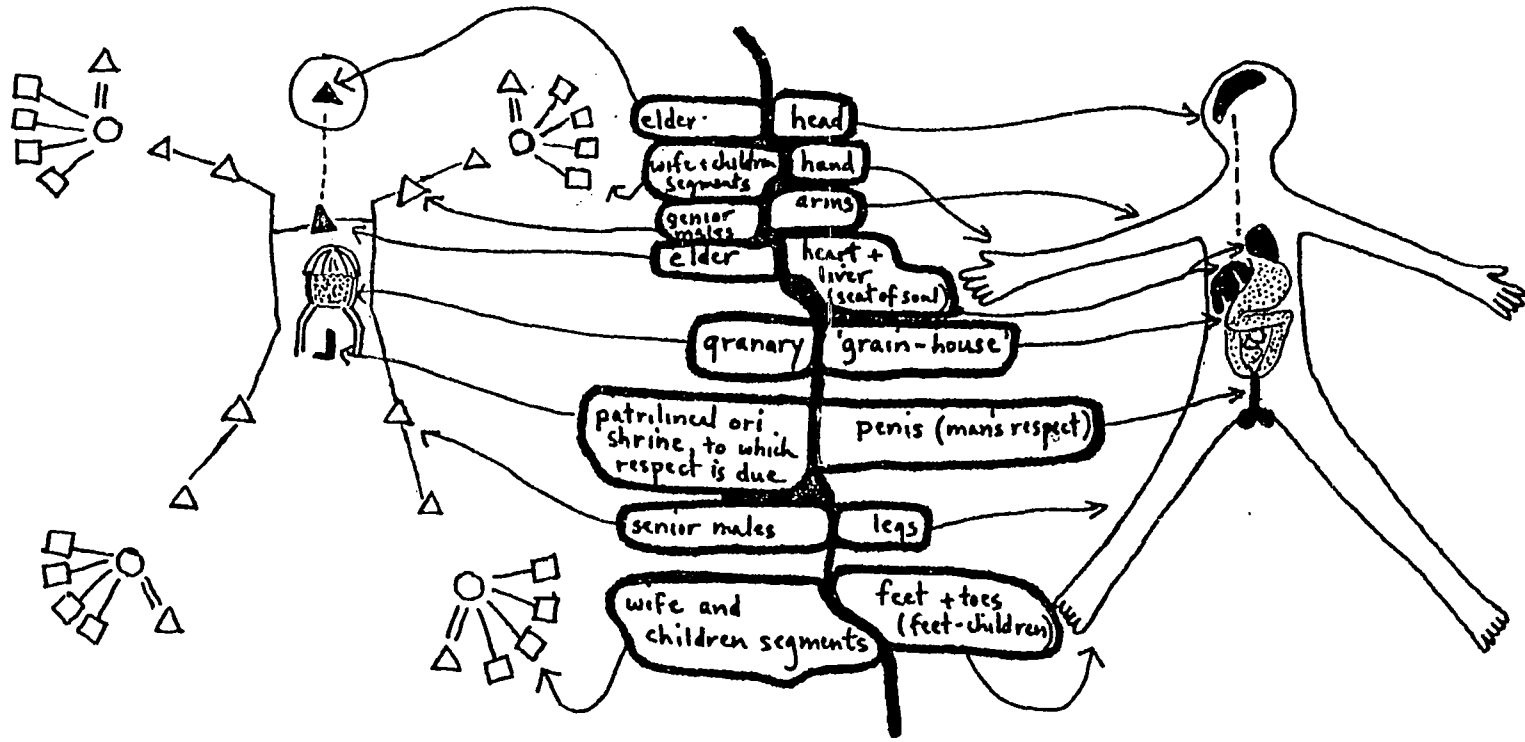 elder
head
wife + children
segments
hand
senior
males
arms
elder
heart +
liver
(seat of soul)
granary
'grain-house'
patrilineal ori
shrine, to which
respect is due
penis (man's respect)
senior males
legs
wife and
children segments
feet + toes
(feet-children)